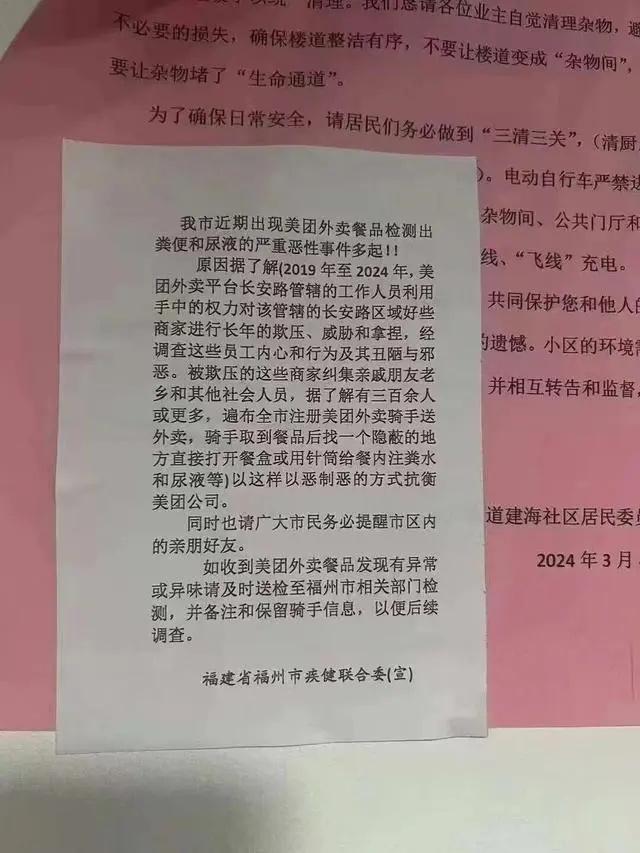 清理。我们恳请各位业主自觉清理杂物，避
不必要的损失，确保楼道整洁有序，不要让楼道变成“杂物间”，
要让杂物堵了“生命通道”。
为了确保日常安全，请居民们务必做到“三清三关”，（清厨
）。电动自行车严禁进
杂物间、公共门厅和
线、“飞线”充电。
共同保护您和他人的
的遗憾。小区的环境需
并相互转告和监督，
道建海社区居民委员
2024年3月
我市近期出现美团外卖餐品检测出
粪便和尿液的严重恶性事件多起!!
原因据了解(2019年至2024年，美
团外卖平台长安路管辖的工作人员利用
手中的权力对该管辖的长安路区域好些
商家进行长年的欺压、威胁和拿捏，经
调查这些员工内心和行为及其丑陋与邪
恶。被欺压的这些商家纠集亲戚朋友老
乡和其他社会人员，据了解有三百余人
或更多，遍布全市注册美团外卖骑手送
外卖，骑手取到餐品后找一个隐蔽的地
方直接打开餐盒或用针筒给餐内注粪水
和尿液等)以这样以恶制恶的方式抗衡
美团公司。
同时也请广大市民务必提醒市区内
的亲朋好友。
如收到美团外卖餐品发现有异常
或异味请及时送检至福州市相关部门检
测，并备注和保留骑手信息，以便后续
调查。
福建省福州市疾健联合委(宣)